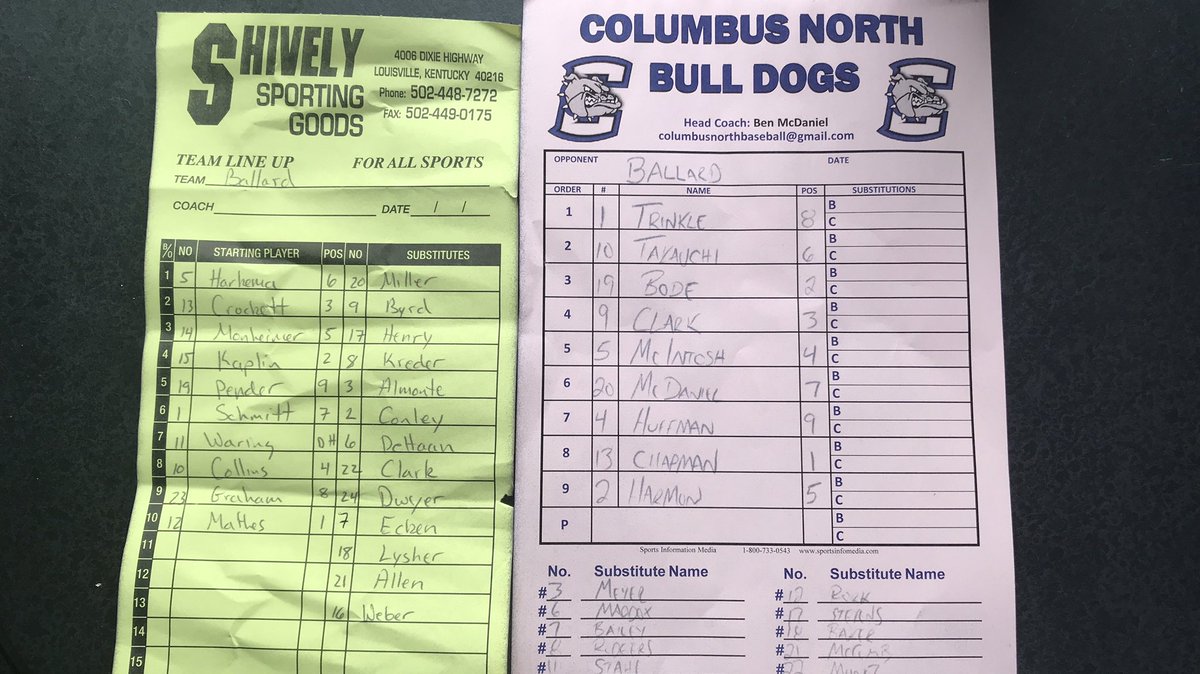 SHIVELY
SPORTING
GOODS
4006 DIXIE HIGHWAY
LOUISVILLE, KENTUCKY 40216
Phone: 502-448-7272
FAX: 502-449-0175
TEAM LINE UP FOR ALL SPORTS
TEAM Ballard
COACH DATE / /
B/O NO STARTING PLAYER POS NO SUBSTITUTES
1 5 Harhema 6 20 Miller
2 13 Crockett 3 9 Byrd
3 14 Monheimer 5 17 Henry
4 15 Kaplin 2 8 Kreder
5 19 Pender 9 3 Almonte
6 1 Schmitt 7 2 Conley
7 11 Waring DH 6 DeHaan
8 10 Collins 4 22 Clark
9 23 Graham 8 24 Dwyer
10 12 Mathes 1 7 Ecken
11 18 Lysher
12 21 Allen
13 16 Weber
14
15
COLUMBUS NORTH
BULL DOGS
C
C
Head Coach: Ben McDaniel
columbusnorthbaseball@gmail.com
OPPONENT BALLARD DATE
ORDER # NAME POS SUBSTITUTIONS
1 1 TRINKLE 8 B C
2 10 TAYAUCHI 6 B C
3 19 BODE 2 B C
4 9 CLARK 3 B C
5 5 MCINTOSH 4 B C
6 20 MCDANIEL 7 B C
7 4 HUFFMAN 9 B C
8 13 CHAPMAN 1 B C
9 2 HARMON 5 B C
P B C
Sports Information Media 1-800-733-0543 www.sportsinfomedia.com
No. Substitute Name No. Substitute Name
#3 MEYER #12
#6 MADDOX #17 STERNS
#7 BAILEY #18
#8 #21
#11 STAHL #22